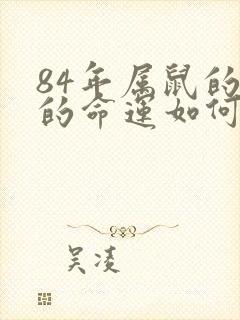 84年属鼠的
的命运如何
吴凌